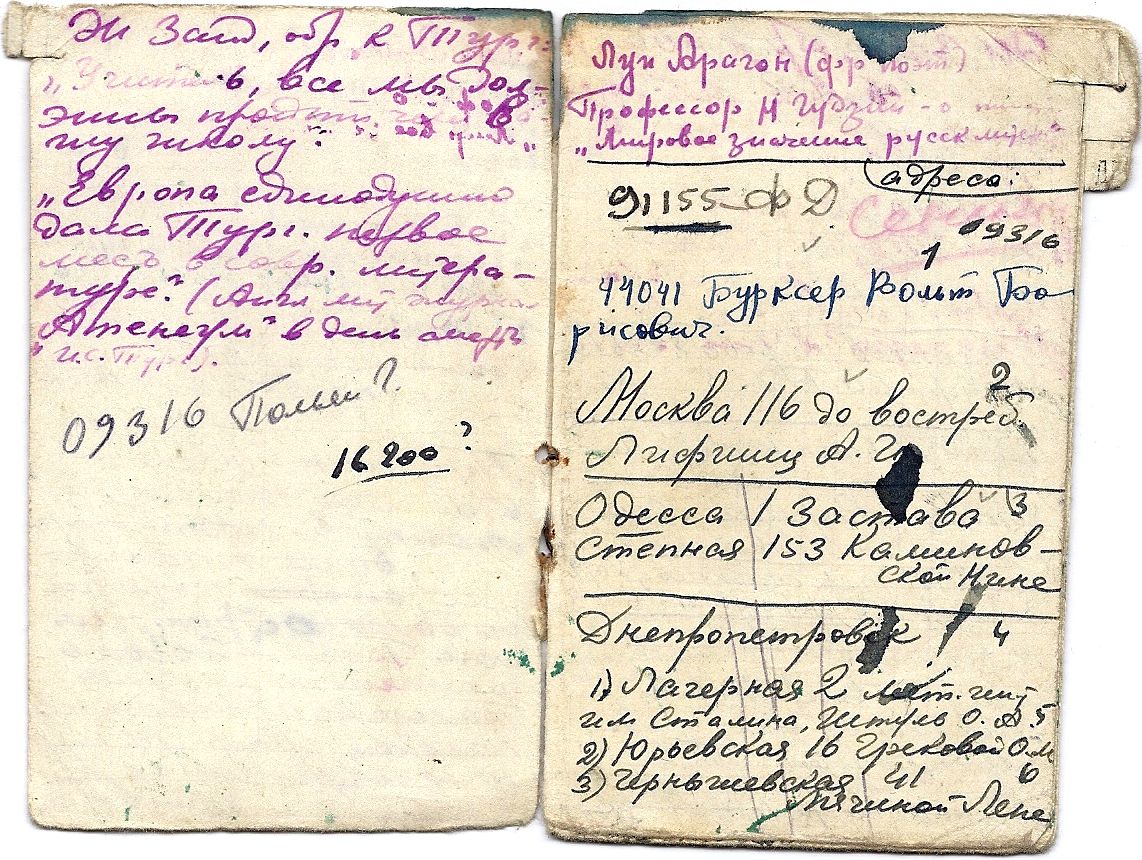 Ж Занд, обр к Тург:
"Учитель, все мы дол-
жны пройти
шу школу".
"Европа единодушно
дала Тург. первое
место в совр. литера-
туре" (Англ
Атенеум" в день смерти
И.С. Тург).
09316 Полев?
16200?
Луи Арагон (фр поэт)
Профессор Н Гудзий - о
"Мировое значение русск лит
адреса:
91155-ф Д
09316
1
44041 Бурксер Вольт Бо
рисович.
2
Москва 116 до востреб.
Лифшиц А. Г.
Одесса 1 Застава 3
Степная 153 Каминов-
ской Нине
Днепропетровск 4
1) Лагерная 2 мет. инт
им Сталина, О. А. 5
2) Юрьевская 16 Грековой О.М
3) Чернышевская 41 6
Лене